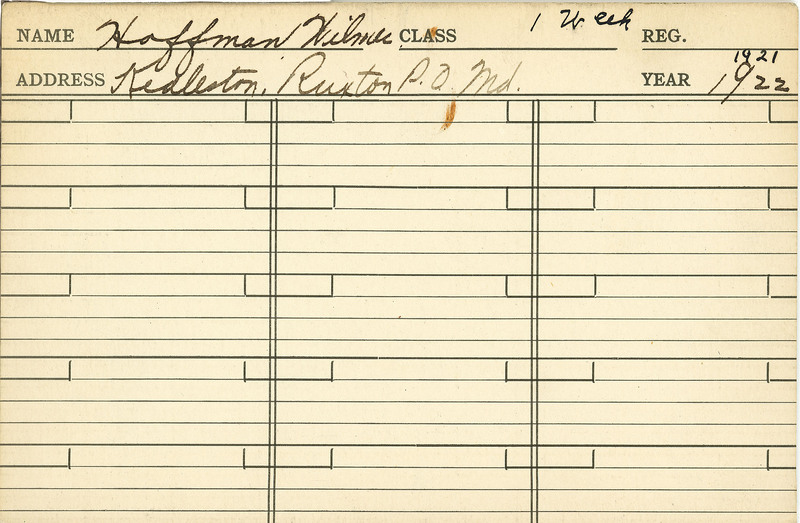 NAME Hoffman Wilmer CLASS 1 Week REG.
ADDRESS Kedleston, Ruxton P.O. Md. YEAR 1921 1922